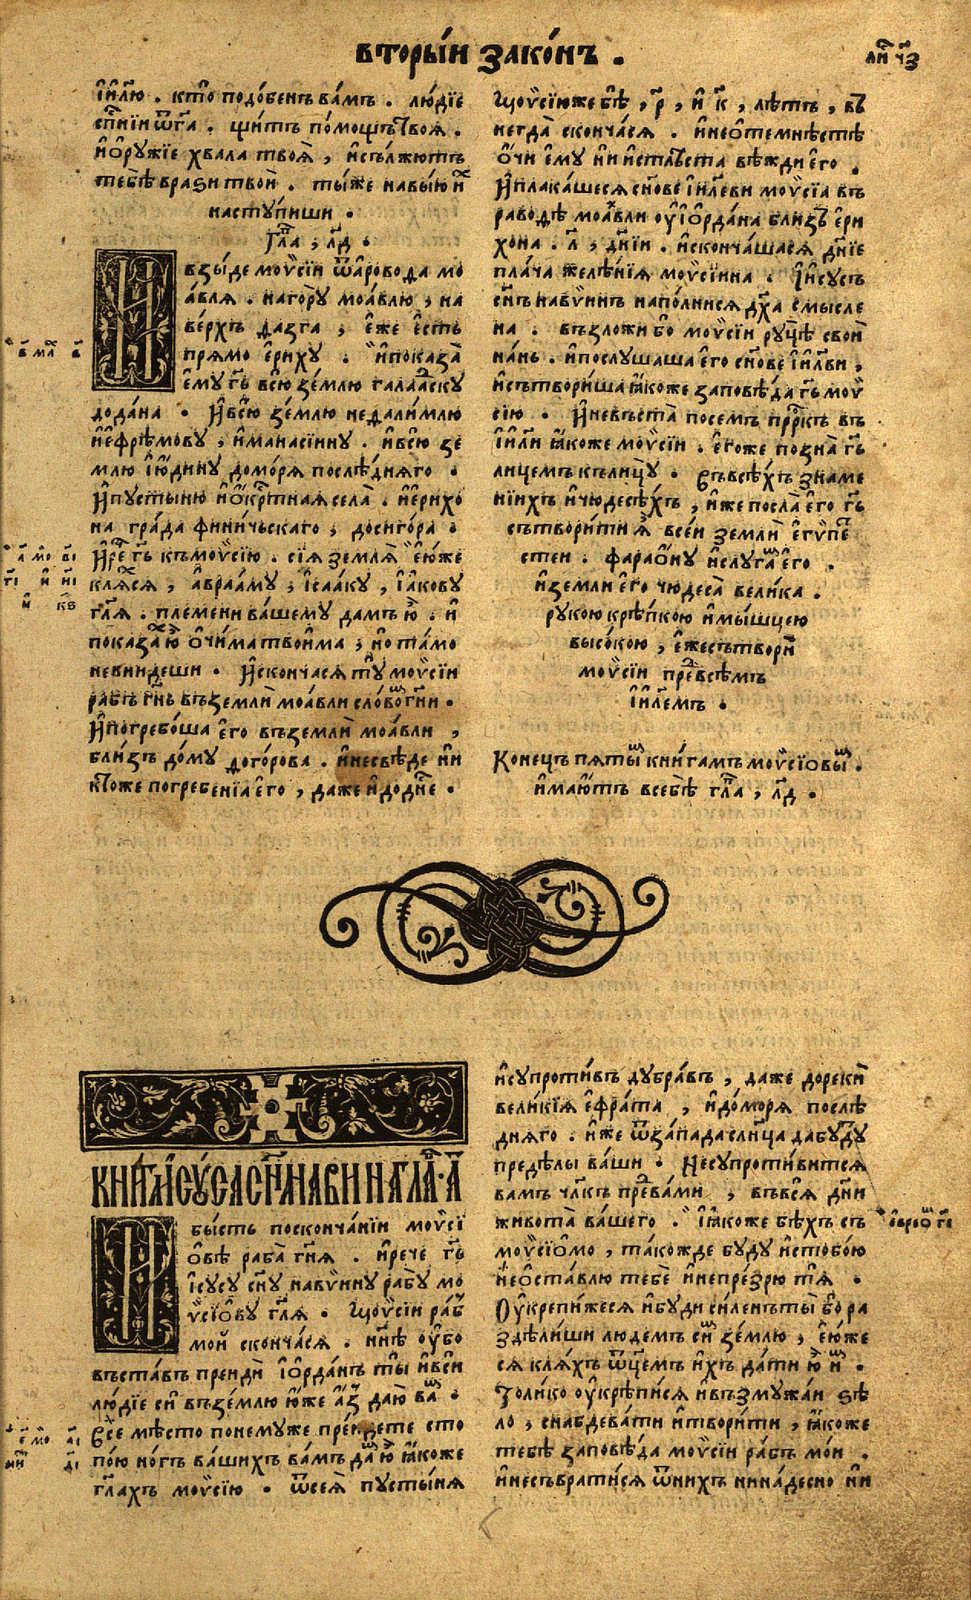 вторы́и зако́нъ .
ли҃ ч҃з
і҆и҃лю . кто̀ подо́бенъ ва́мъ . лю́дїе
сп҃нїи ѿг҃а . щи́тъ по́мощъ твоя̀ .
и҆ѻ҆ру́жїе хвала̀ твоѧ̀ , и҆сължю́тъ
тебѣ̀ врази твоѝ . ты́же навы́ю и҆х
насту́пиши .
гл҃а , л҃д .
Ивзы́де моѷсїи ѿаровода мо
а́влѧ . нагору̀ моа́влю , на
ве́рхъ дазга , є҆́же є҆́сть
прѧмо є҆риху . и҆показа̀
є҆му̀ г҃ь всю̀ зе́млю галаа́дску
дода́на . И҆всю̀ зе́млю недали́млю
и҆є҆фрѣмову , и҆манасїину . и҆всю̀ зе
млю і҆ю҆́дину домо́рѧ послѣ́днѧго .
И҆пусты́ню и҆ѻ҆кр҃тнаѧ села̀ . и҆є҆рихо
на гра́да фини́чьскаго , доси́гора .
И҆ре҃ г҃ь къмоѷсїю . сїѧ землѧ̀ є҆ю́же
клѧ́хсѧ , а҆враа́му , і҆саа́ку , і҆а́кову
гл҃ѧ . племени ва́шему дамъ ю҆̀ . и҆
показа́х ю҆̀ ѻ҆чи́ма твои́ма , и҆ о та́мо
невни́деши . И҆скончасѧ ту̀ моѷсїи
рабъ гн҃ь въземли̂ моа́вли сло́во гн҃и .
И҆погребо́ша є҆го въземлѝ моа́вли ,
бли́зъ до́му догорова . и҆несвѣ́де ни
кто́же погребенїа є҆го̀ , даже и҆додн҃е .
Ꙗ҆моѷсїюже бѣ̀ , р҃ , и҆ к҃ , лѣ́тъ , въ
негда̀ сконча́сѧ . и҆неѻ҆темнѣ́стѣ
ѻ҆́чи є҆му̀ ни и҆стлѣ́ста вѣ́жди є҆го̀ .
И҆плака́шесѧ сн҃ове і҆и҃леви моѷсїа въ
раводѣ̀ моа́вли оу҆і҆ѻ҆рда́на бли́зъ є҆ри
хона . л҃ , дн҃їи . и҆сконча́шасѧ дн҃їе
пла́ча желѣ́нїѧ моѷсїина . І҆и҆сусъ
сн҃ъ навѷинъ напо́лнисѧ дх҃а смысле
на . възложи бо моѷсїи ру́цѣ своѝ
на́нь . и҆послушаша є҆го̀ сн҃ове і҆и҃лви ,
и҆сътвори́ша ꙗ҆́коже заповѣ́да г҃ь моѷ
сїю . И҆невъста̀ посемъ пр҃ркъ въ
і҆и҃ли ꙗ҆́коже моѷсїи . є҆го́же позна̀ г҃ь
лице́мъ къ лицу̀ . въвсѣ́хъ знаме
нїихъ и҆чюдесѣ́хъ , и҆́же посла̀ є҆го̀ г҃ь
сътвори́ти ѧ҆̀ все́и землѝ є҆гѷпе
стеи . фараѻ́ну и҆слуга́м є҆го̀ .
и҆земли є҆го̀ чюдеса̀ вели́ка .
рукою крѣ́пкою и҆мы́шцею
высо́кою , є҆́жесътворѝ
моѷсїи пре́двсѣмъ
і҆и҃лемъ .
Коне́цъ пяты́м кни́гамъ моѷсїовы́м .
и҆ма́ютъ всебѣ̀ гл҃а , л҃д .
в҃ ма҃ к҃ в҃
КНИГА І҆СУ́СА СН҃А НА́ВИНА ГЛА҃ . А҃
И бы́сть посконча́нїи моѷсї
ѻ́вѣ раба̀ гн҃ѧ . и҆рече г҃ь
і҆су́су сн҃у навѷину рабу̀ мо
ѷсїѻ́ву гл҃ѧ . Ꙗ҆моѷсїи ра́бъ
мо́и сконча́сѧ . нн҃ѣ оу҆́бо
въста́въ преидѝ і҆ѻ҆рда́нъ ты̀ и҆всѝ
лю́дїе сѝ въземлю ю҆́же а҆́з даю̀ ва́м .
Все мѣ́сто понемуже пре́идете сто
по́ю но́гъ ва́шихъ ва́мъ да́м ю҆̀ ꙗ҆́коже
гл҃ахъ моѷсїю . ѿсеѧ̀ пусты́нѧ
и҆супроти́въ дубра́въ , даже дорекѝ
вели́кїѧ є҆фра́та , и҆домо́рѧ послѣ
днѧго . и҆́же ѿза́пада сл҃нца дабу́ду
предѣ́лы ва́ши . Несупроти́витсѧ
вамъ чл҃къ пре́двами , въвсѧ̀ дн҃и
живота̀ ва́шего . ꙗ҆́коже бѣ́хъ съ
моѷсїѻ́мо , та́кожде буду и҆стобо́ю
неѻ҆ста́влю тебѐ и҆непре́зрю тѧ̀ .
Оу҆крепи́жесѧ и҆бу́ди си́ленъ ты́ бо ра
здѣли́ши лю́демъ сїю̀ зе́млю , є҆ю́же
сѧ клѧ́хъ ѿц҃емъ и҆хъ да́ти ю҆̀ и҆м .
То́лико оу҆крѣпи́сѧ и҆възмужа́и ѕѣ
ло , снабдева́ти и҆твори́ти , ꙗ҆́коже
тебѣ̀ заповѣ́да моѷсїи рабъ мо́и .
и҆несъврати́сѧ ѿнихъ нина́десно ни